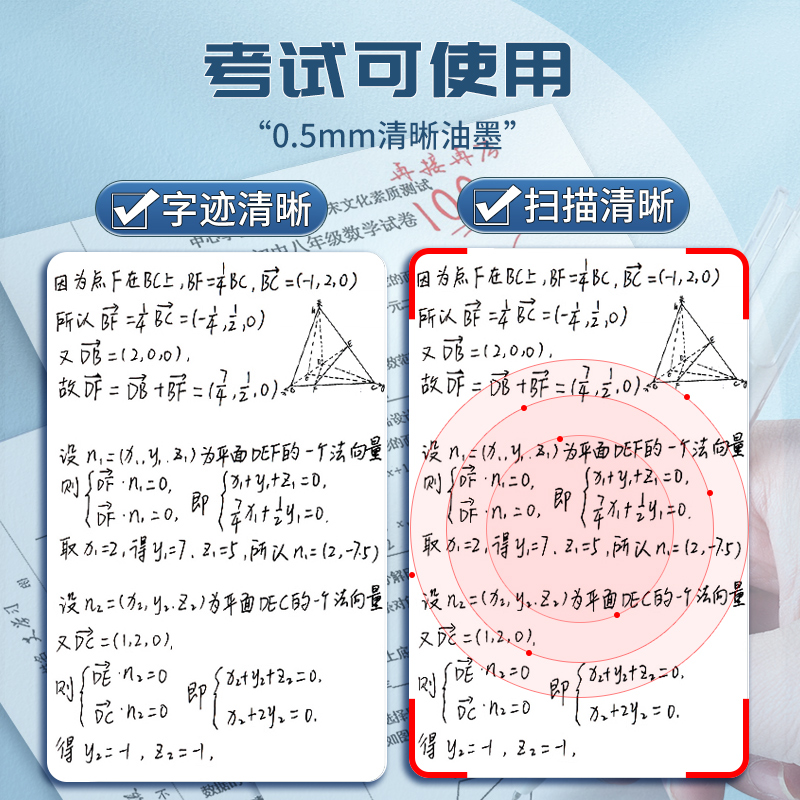 考试可使用
“0.5mm清晰油墨”
再接再厉
末文化素质测试
中八年级数学试卷
100
字迹清晰
扫描清晰
因为点F在BC上,BF=1/4BC,BC→=(-1,2,0)
所以BF→=1/4BC→=(-1/4,1/2,0)
又DB→=(2,0,0),
故DF→=DB→+BF→=(7/4,1/2,0)
设n₁=(x₁,y₁,z₁)为平面DEF的一个法向量
则{DF→·n₁=0, 即{x₁+y₁+z₁=0,
DF→·n₁=0, 7/4x₁+1/2y₁=0.
取x₁=2,得y₁=7.z₁=5,所以n₁=(2,-7.5)
设n₂=(x₂,y₂.z₂)为平面DEC的一个法向量
又DC→=(1,2,0).
则{DE→·n₂=0 即{x₂+y₂+z₂=0.
DC→·n₂=0 x₂+2y₂=0.
得y₂=-1,z₂=-1,
因为点F在BC上,BF=1/4BC,BC→=(-1,2,0)
所以BF→=1/4BC→=(-1/4,1/2,0)
又DB→=(2,0,0),
故DF→=DB→+BF→=(7/4,1/2,0)
设n₁=(x₁,y₁,z₁)为平面DEF的一个法向量
则{DF→·n₁=0, 即{x₁+y₁+z₁=0,
DF→·n₁=0, 7/4x₁+1/2y₁=0.
取x₁=2,得y₁=7.z₁=5,所以n₁=(2,-7.5)
设n₂=(x₂,y₂.z₂)为平面DEC的一个法向量
又DC→=(1,2,0).
则{DE→·n₂=0 即{x₂+y₂+z₂=0.
DC→·n₂=0 x₂+2y₂=0.
得y₂=-1,z₂=-1,